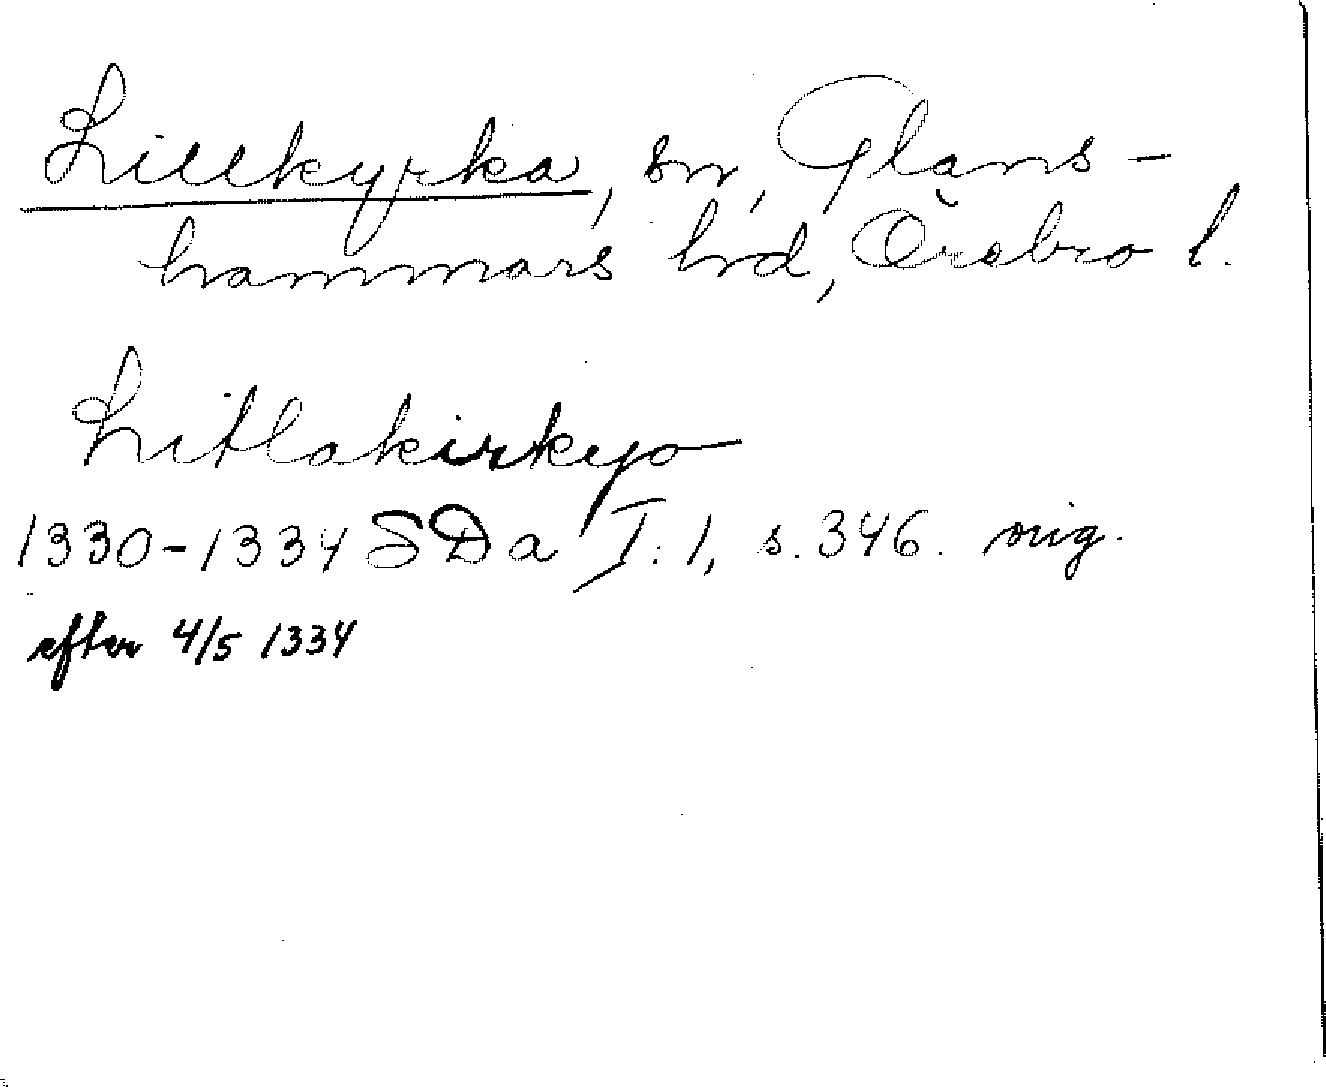 Lillkyrka, sn, Glans-
hammars hrd, Örebro l.
Litlakirkyo
1330-1334 SDa I:1, s. 346. orig.
efter 4/5 1334